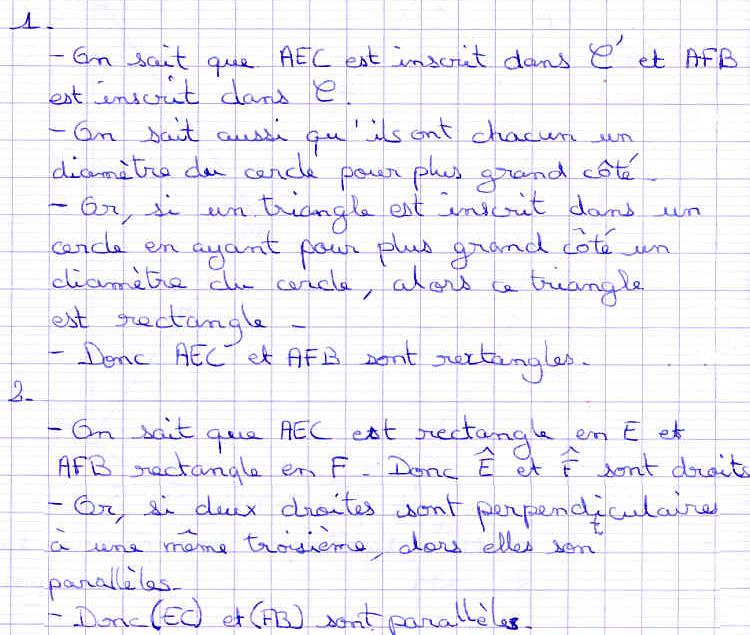 1.
- On sait que AEC est inscrit dans C' et AFB
est inscrit dans C.
- On sait aussi qu'ils ont chacun un
diamètre du cercle pour plus grand côté.
- Or, si un triangle est inscrit dans un
cercle en ayant pour plus grand côté un
diamètre du cercle, alors ce triangle
est rectangle -
- Donc AEC et AFB sont rectangles.
2-
- On sait que AEC est rectangle en E et
AFB rectangle en F. Donc Ê et F̂ sont droits
- Or, si deux droites sont perpendiculaires
à une même troisième, alors elles sont
parallèles.
- Donc (EC) et (FB) sont parallèles.